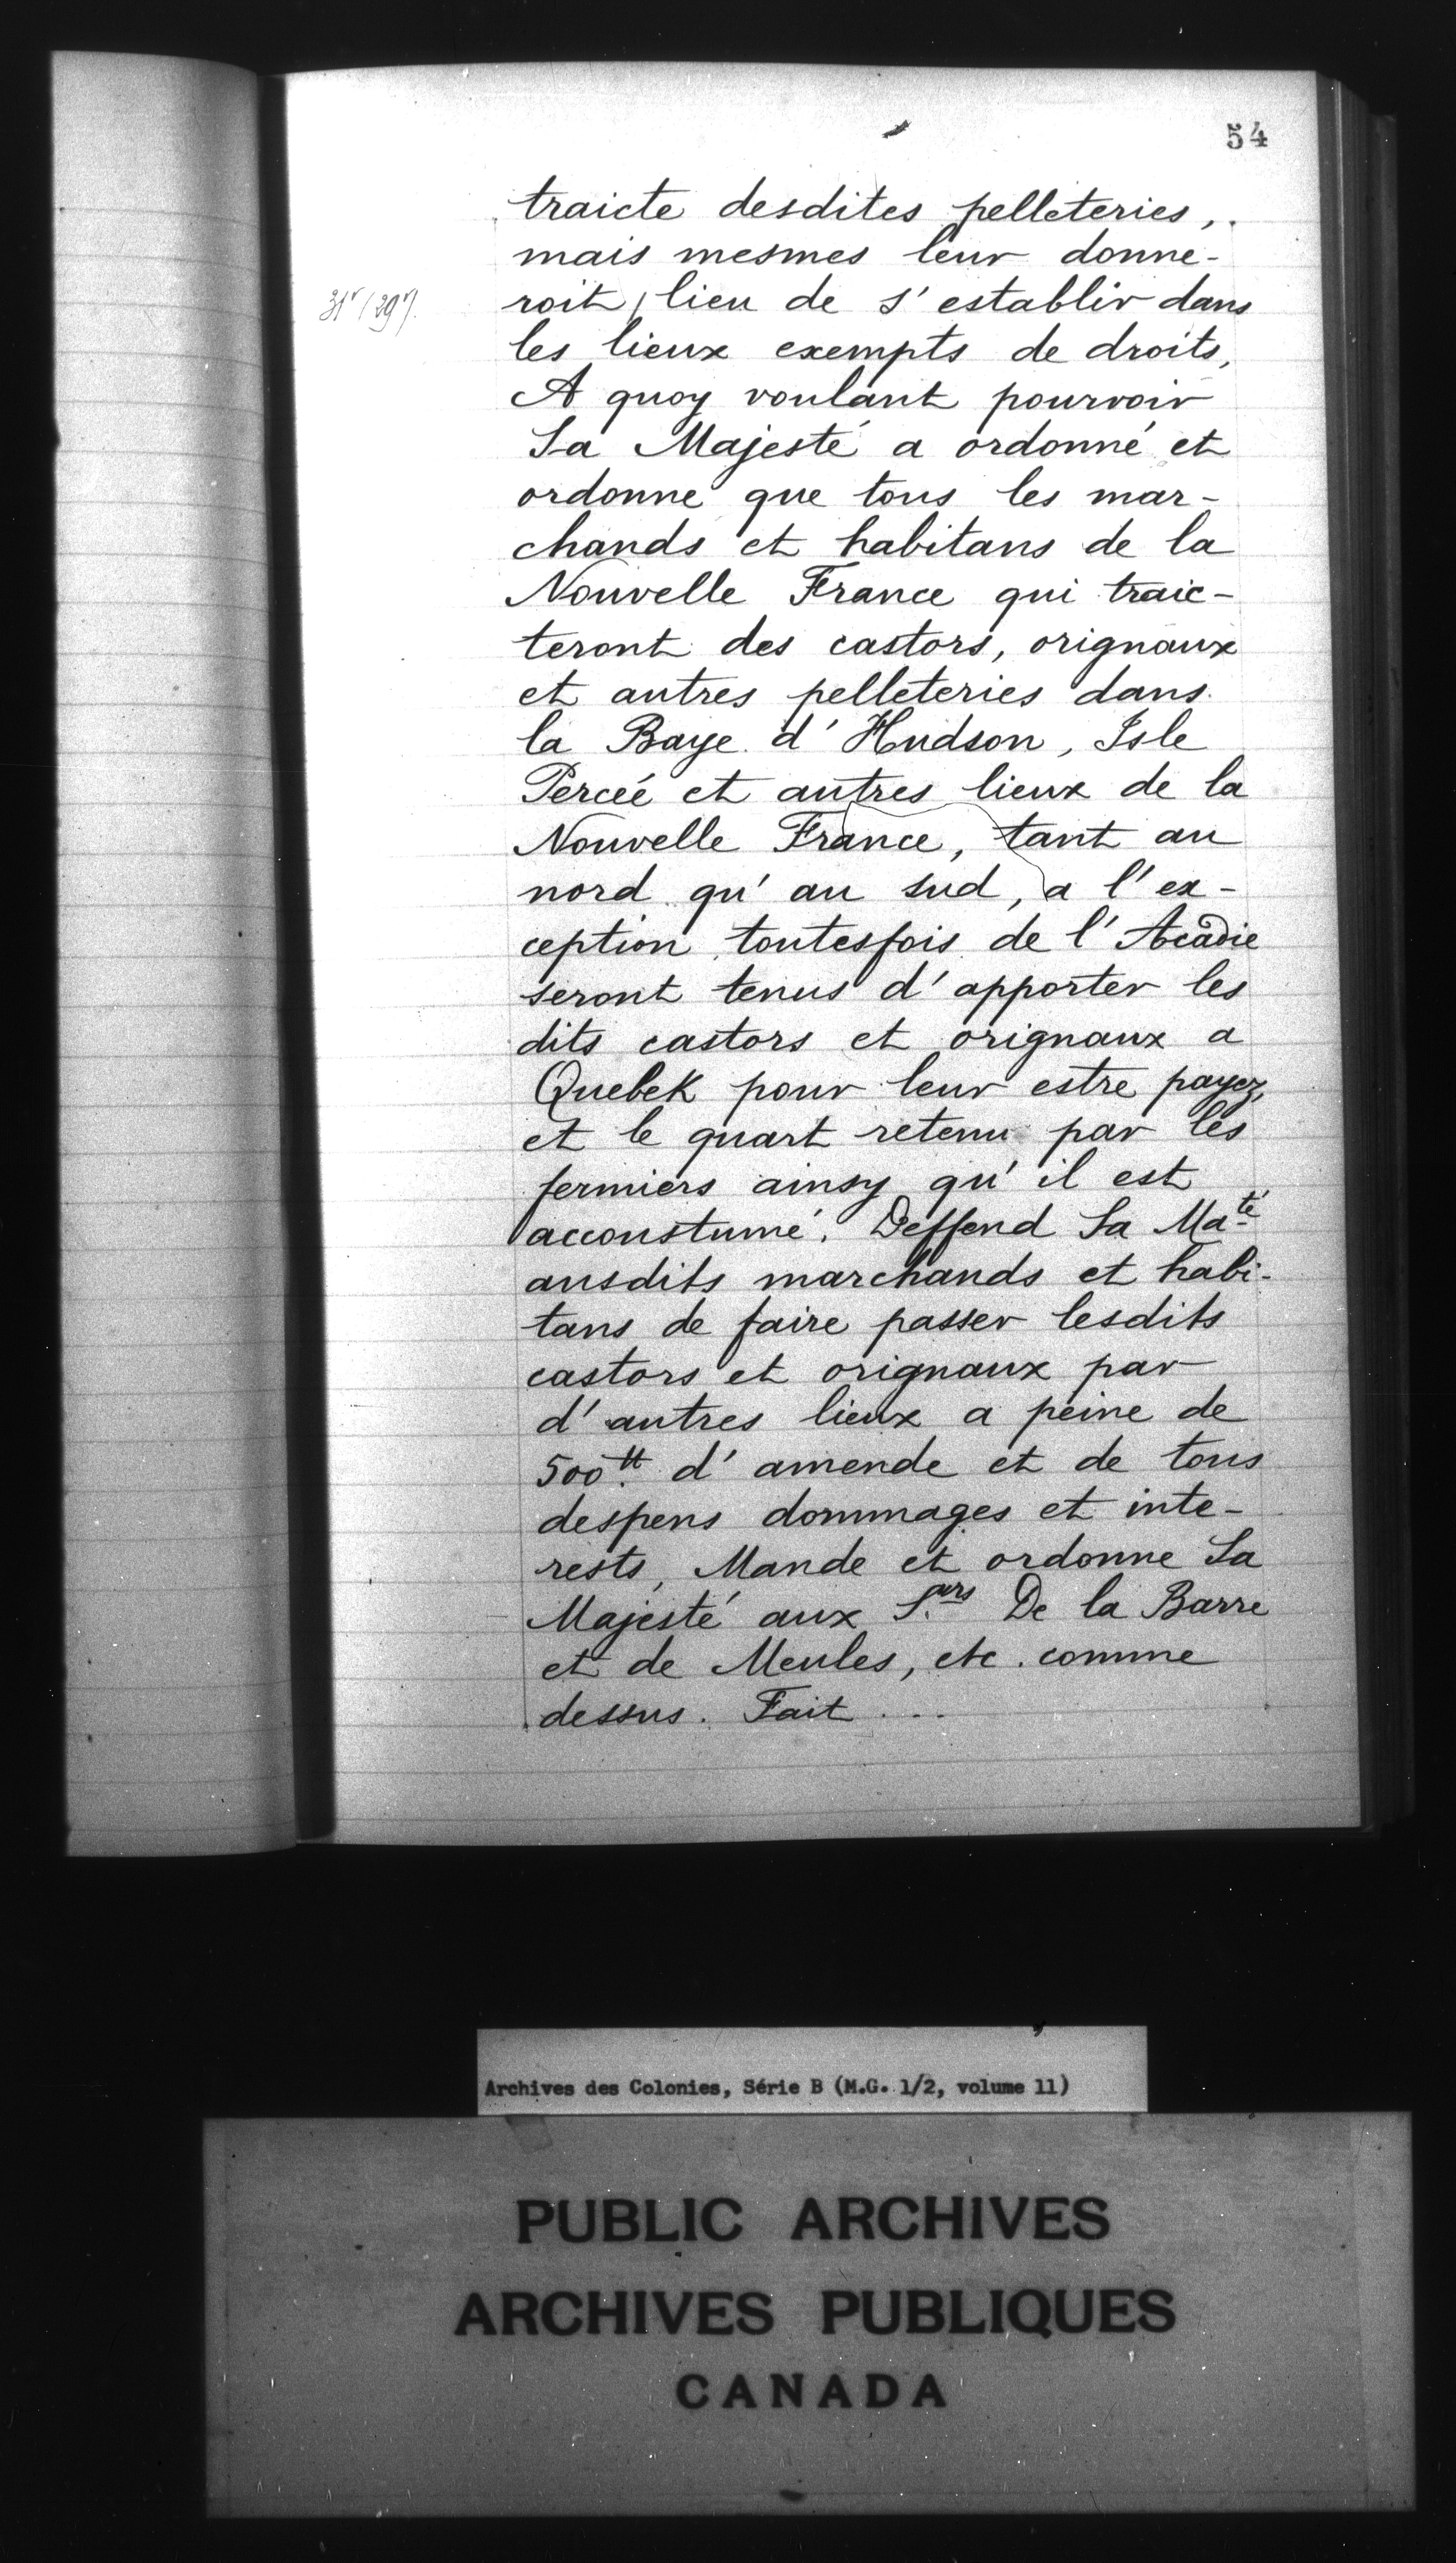 54
traicte desdites pelleteries,
mais mesmes leur donne-
roit / lieu de s'establir dans
les lieux exempts de droits,
A quoy voulant pourvoir
Sa Majesté a ordonné et
ordonne que tous les mar-
chands et habitans de la
Nouvelle France qui traic-
teront des castors, orignaux
et autres pelleteries dans
la Baye d'Hudson, Isle
Percéé et autres lieux de la
Nouvelle France, tant au
nord qu'au sud, a l'ex-
ception toutesfois de l'Acadie
seront tenus d'apporter les
dits castors et orignaux a
Quebek pour leur estre payez,
et le quart retenu par les
fermiers ainsy qu'il est
accoustumé. Deffend Sa Maté
ausdits marchands et habi-
tans de faire passer lesdits
castors et orignaux par
d'autres lieux a peine de
500tt d'amende et de tous
despens dommages et inte-
rests, Mande et ordonne Sa
Majesté aux S.urs De la Barre
et de Meules, etc. comme
dessus. Fait ...
Archives des Colonies, Série B (M.G. 1/2, volume 11)
PUBLIC ARCHIVES
ARCHIVES PUBLIQUES
CANADA